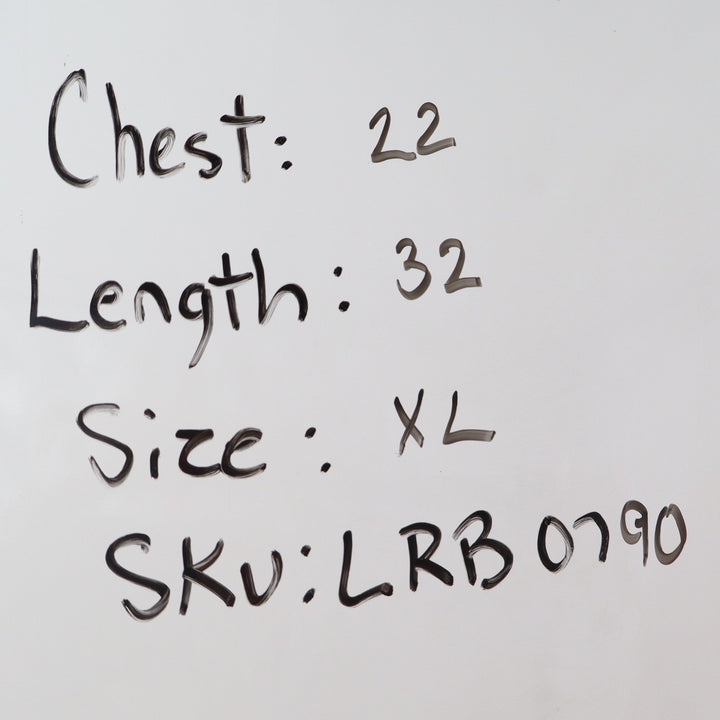 Chest: 22
Length: 32
Size: XL
SKU: LRB 0790